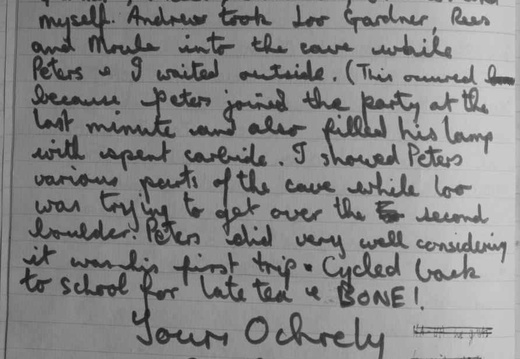 myself. Andrew took Loo Gardner, Rees
and Moule into the cave while
Peters & I waited outside. (This occured
because Peters joined the party at the
last minute and also filled his lamp
with spent carbide. I showed Peters
various parts of the cave while Loo
was trying to get over the second
boulder. Peters did very well considering
it was his first trip. Cycled back
to school for late tea & BONE!
Yours Ochrely